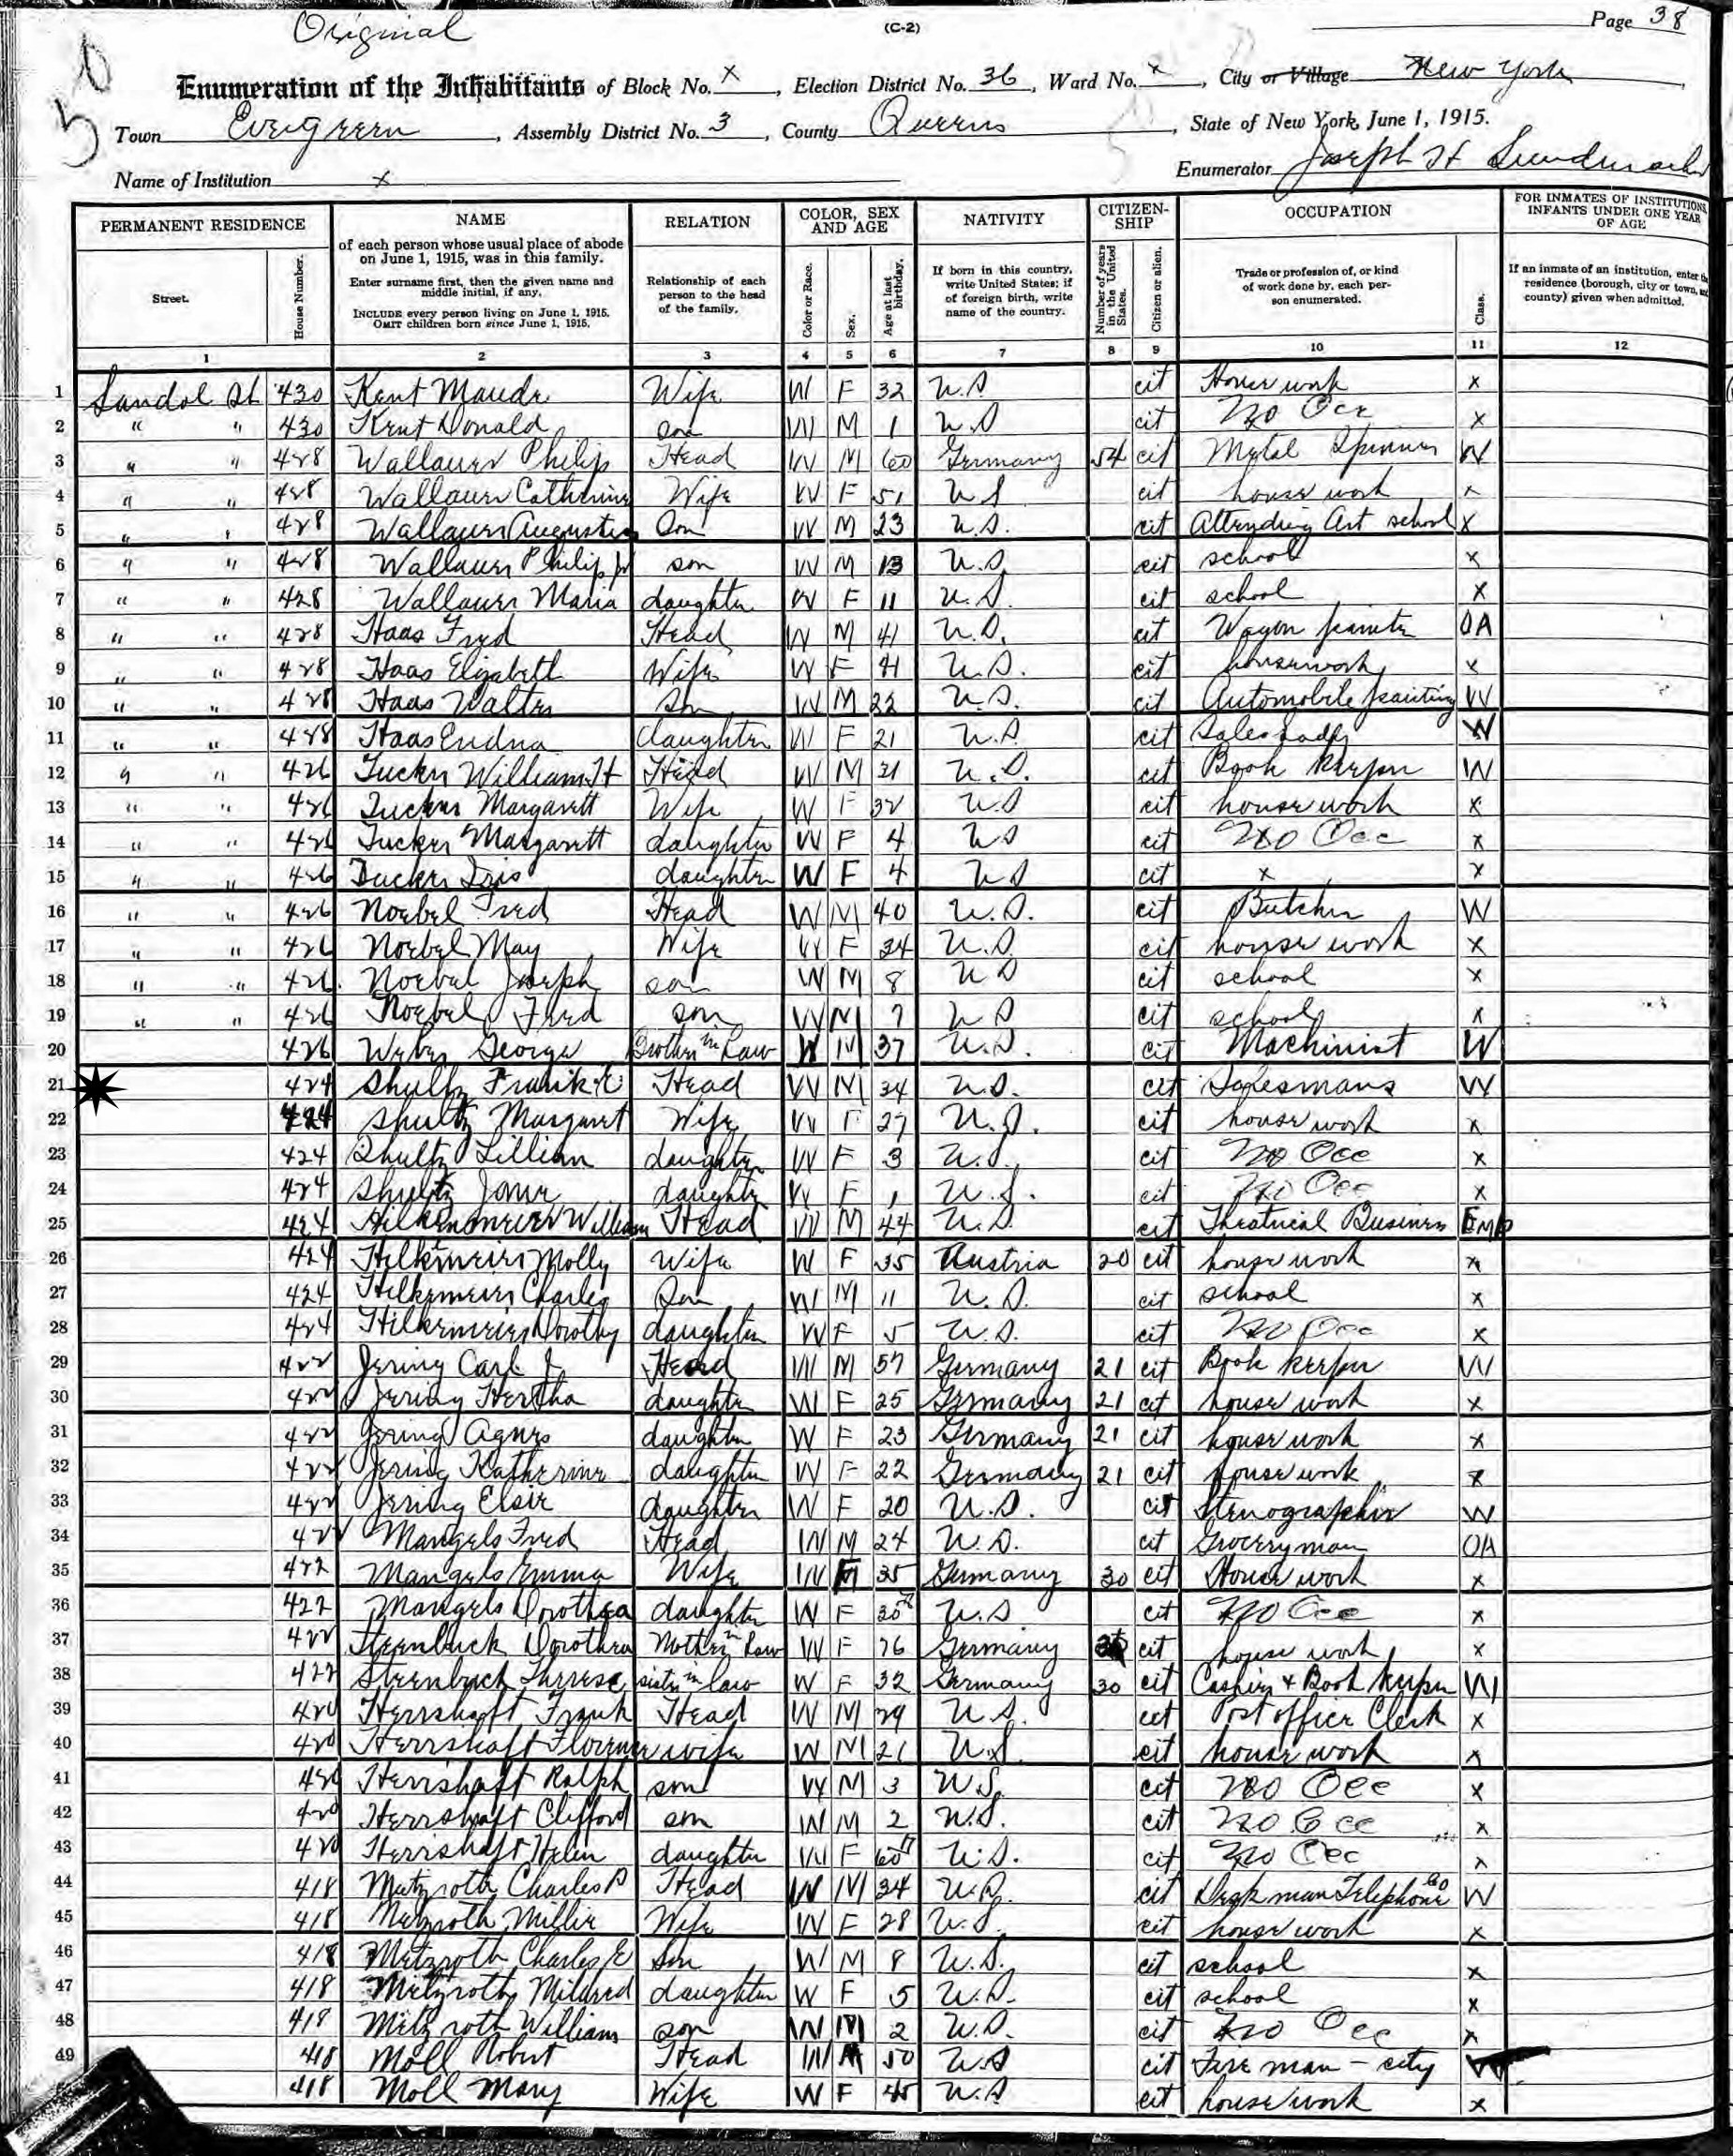 Original
(C-2)
Page 38
Enumeration of the Inhabitants of Block No. x, Election District No. 36, Ward No. x, City or Village New York,
Town Evergreen, Assembly District No. 3, County Queens, State of New York, June 1, 1915.
Name of Institution x Enumerator Joseph H
PERMANENT RESIDENCE NAME RELATION COLOR, SEX AND AGE NATIVITY CITIZEN-SHIP OCCUPATION FOR INMATES OF INSTITUTIONS, INFANTS UNDER ONE YEAR OF AGE
Street. House Number. of each person whose usual place of abode on June 1, 1915, was in this family. Enter surname first, then the given name and middle initial, if any. INCLUDE every person living on June 1, 1915. OMIT children born since June 1, 1915. Relationship of each person to the head of the family. Color or Race. Sex. Age at last birthday. If born in this country, write United States; if of foreign birth, write name of the country. Number of years in the United States. Citizen or alien. Trade or profession of, or kind of work done by, each person enumerated. Class. If an inmate of an institution, enter residence (borough, city or town, county) given when admitted.
1 2 3 4 5 6 7 8 9 10 11 12
1 Sandol St 430 Kent Maude Wife W F 32 U.S cit House work x
2 " " 430 Kent Donald son W M 1 U.S cit No Occ x
3 " " 428 Wallauer Philip Head W M 60 Germany 54 cit Metal Spinner W
4 " " 428 Wallauer Catherine Wife W F 51 U S cit house work x
5 " " 428 Wallauer Son W M 23 U.S. cit Attending Art school x
6 " " 428 Wallauer Philip Jr son W M 13 U.S. cit school x
7 " " 428 Wallauer Maria daughter W F 11 U.S. cit school x
8 " " 428 Haas Fred Head W M 41 U.S. cit Wagon painter OA
9 " " 428 Haas Elizabeth Wife W F 41 U.S. cit housework x
10 " " 428 Haas Walter Son W M 22 U.S. cit Automobile painting W
11 " " 428 Haas Eudna daughter W F 21 U.S. cit Saleslady W
12 " " 426 Tucker William H Head W M 31 U.S. cit Book keeper W
13 " " 426 Tucker Margarett Wife W F 32 U.S cit house work x
14 " " 426 Tucker Margarett daughter W F 4 U S cit No Occ x
15 " " 426 Tucker Iris daughter W F 4 U S cit x x
16 " " 426 Noebel Fred Head W M 40 U.S. cit Butcher W
17 " " 426 Noebel May Wife W F 34 U.S. cit house work x
18 " " 426 Noebel Joseph son W M 8 U S cit school x
19 " " 426 Noebel Fred son W M 7 U S cit school x
20 426 Weber George Brother in Law W M 37 U.S. cit Machinist W
21 424 Shultz Frank E Head W M 34 U.S. cit Salesmans W
22 424 Shultz Margaret Wife W F 27 U.S. cit house work x
23 424 Shultz Lillian daughter W F 3 U.S. cit No Occ x
24 424 Shultz daughter W F 1 U.S. cit No Occ x
25 424 William Head W M 44 U.S. cit Theatrical Business Emp
26 424 Hilkemeier Molly Wife W F 35 Austria 20 cit house work x
27 424 Hilkemeier Charles Son W M 11 U.S. cit school x
28 424 Hilkemeier Dorothy daughter W F 5 U.S. cit No Occ x
29 422 Jering Carl J Head W M 57 Germany 21 cit Book keeper W
30 422 Jering Hertha daughter W F 25 Germany 21 cit house work x
31 422 Jering Agnes daughter W F 23 Germany 21 cit house work x
32 422 Jering Katherine daughter W F 22 Germany 21 cit house work x
33 422 Jering Elsie daughter W F 20 U.S. cit Stenographer W
34 422 Mangels Fred Head W M 24 U.S. cit Groceryman OA
35 422 Mangels Emma Wife W F 35 Germany 30 cit House work x
36 422 Mangels Dorothea daughter W F U.S cit No Occ x
37 422 Steenbuck Dorothea Mother in Law W F 76 Germany cit house work x
38 422 Steenbuck Therese sister in law W F 32 Germany 30 cit Cashier + Book keeper W
39 420 Herrshaft Frank Head W M 29 U.S. cit Post office Clerk x
40 420 Herrshaft Florence wife W M 21 U.S. cit house work x
41 420 Herrshaft Ralph son W M 3 U.S. cit No Occ x
42 420 Herrshaft Clifford son W M 2 U.S. cit No Occ x
43 420 Herrshaft Helen daughter W F U.S. cit No Occ x
44 418 Metzroth Charles P Head W M 34 U.S. cit Desk man Telephone Co W
45 418 Metzroth Millie Wife W F 28 U.S. cit house work x
46 418 Metzroth Charles E Son W M 8 U.S. cit school x
47 418 Metzroth Mildred daughter W F 5 U.S. cit school x
48 418 Metzroth William son W M 2 U.S. cit No Occ x
49 418 Moll Robert Head W M 50 U.S cit Fire man - city W
418 Moll Mary Wife W F 45 U.S cit house work x